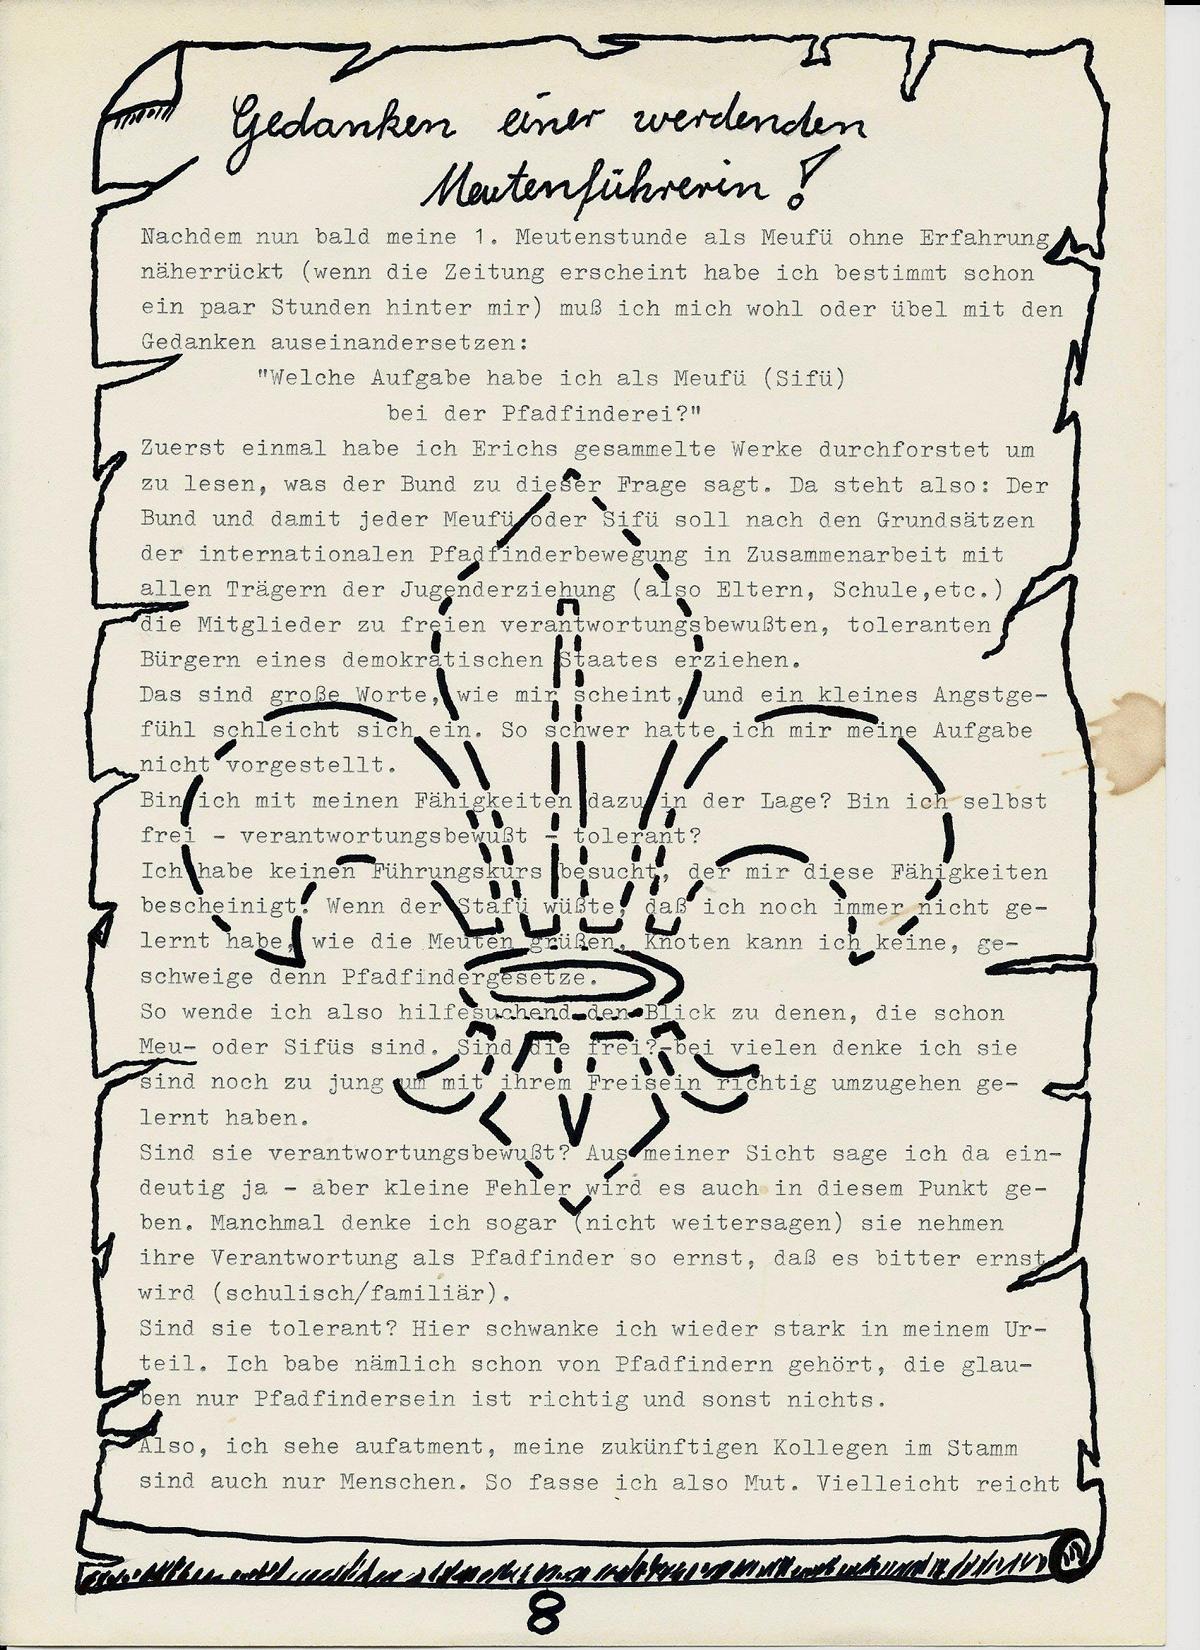 Gedanken einer werdenden
Meutenführerin!
Nachdem nun bald meine 1. Meutenstunde als Meufü ohne Erfahrung
näherrückt (wenn die Zeitung erscheint habe ich bestimmt schon
ein paar Stunden hinter mir) muß ich mich wohl oder übel mit den
Gedanken auseinandersetzen:
"Welche Aufgabe habe ich als Meufü (Sifü)
bei der Pfadfinderei?"
Zuerst einmal habe ich Erichs gesammelte Werke durchforstet um
zu lesen, was der Bund zu dieser Frage sagt. Da steht also: Der
Bund und damit jeder Meufü oder Sifü soll nach den Grundsätzen
der internationalen Pfadfinderbewegung in Zusammenarbeit mit
allen Trägern der Jugenderziehung (also Eltern, Schule,etc.)
die Mitglieder zu freien verantwortungsbewußten, toleranten
Bürgern eines demokratischen Staates erziehen.
Das sind große Worte, wie mir scheint, und ein kleines Angstge-
fühl schleicht sich ein. So schwer hatte ich mir meine Aufgabe
nicht vorgestellt.
Bin ich mit meinen Fähigkeiten dazu in der Lage? Bin ich selbst
frei - verantwortungsbewußt - tolerant?
Ich habe keinen Führungskurs besucht, der mir diese Fähigkeiten
bescheinigt. Wenn der Stafü wüßte, daß ich noch immer nicht ge-
lernt habe, wie die Meuten grüßen. Knoten kann ich keine, ge-
schweige denn Pfadfindergesetze.
So wende ich also hilfesuchend den Blick zu denen, die schon
Meu- oder Sifüs sind. Sind die frei?-bei vielen denke ich sie
sind noch zu jung um mit ihrem Freisein richtig umzugehen ge-
lernt haben.
Sind sie verantwortungsbewußt? Aus meiner Sicht sage ich da ein-
deutig ja - aber kleine Fehler wird es auch in diesem Punkt ge-
ben. Manchmal denke ich sogar (nicht weitersagen) sie nehmen
ihre Verantwortung als Pfadfinder so ernst, daß es bitter ernst
wird (schulisch/familiär).
Sind sie tolerant? Hier schwanke ich wieder stark in meinem Ur-
teil. Ich babe nämlich schon von Pfadfindern gehört, die glau-
ben nur Pfadfindersein ist richtig und sonst nichts.
Also, ich sehe aufatment, meine zukünftigen Kollegen im Stamm
sind auch nur Menschen. So fasse ich also Mut. Vielleicht reicht
8